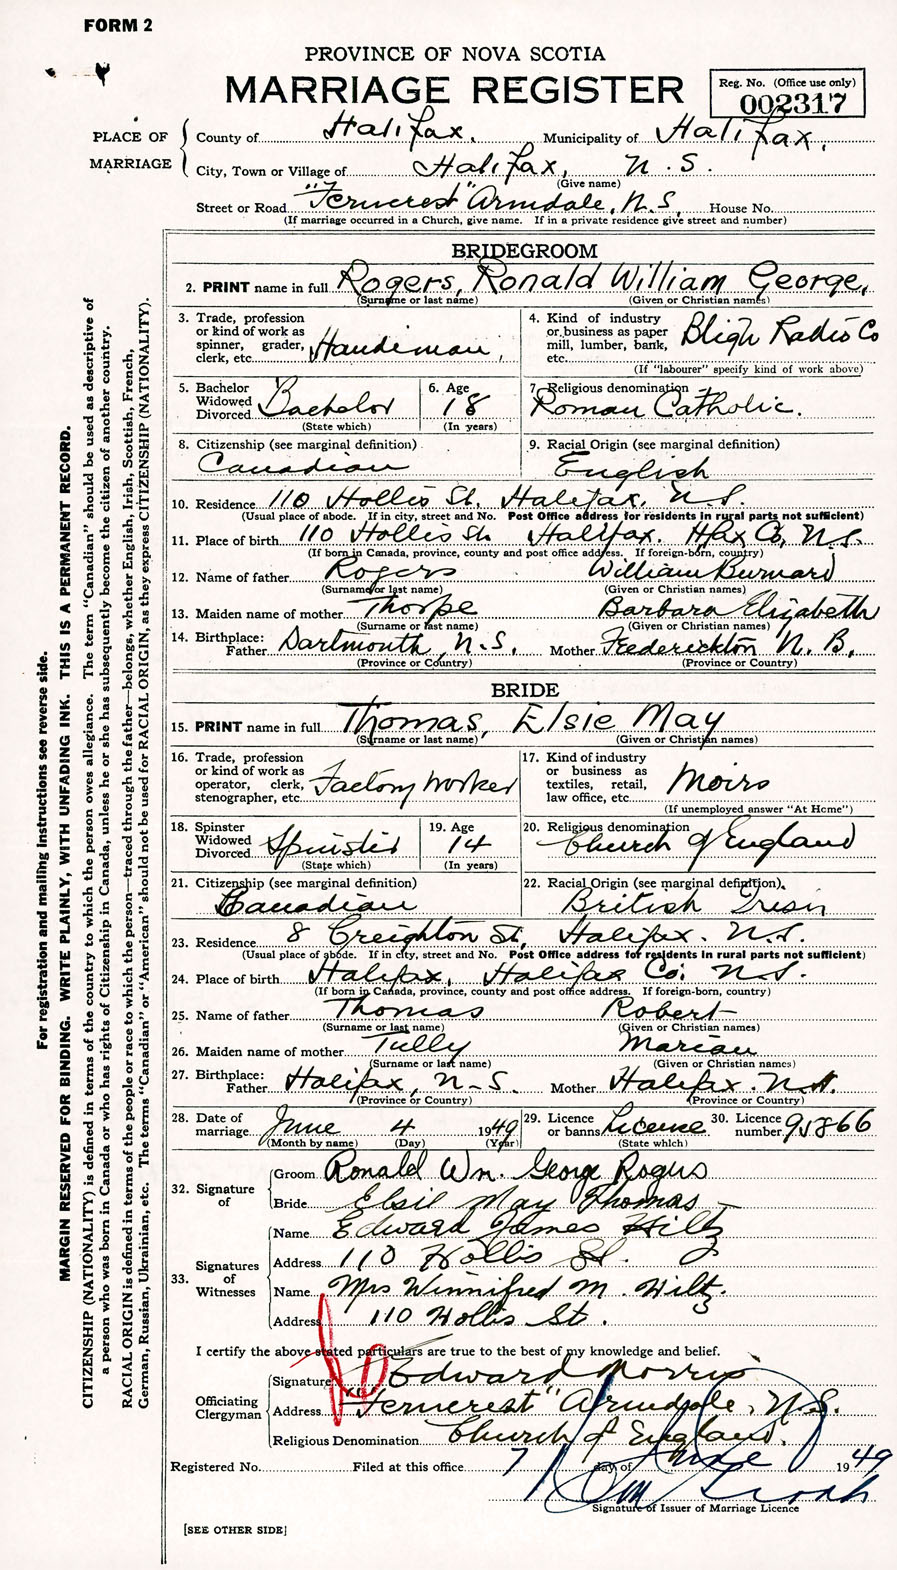 FORM 2
PROVINCE OF NOVA SCOTIA
MARRIAGE REGISTER
Reg. No. (Office use only)
002317
PLACE OF MARRIAGE
County of Halifax, Municipality of Halifax,
City, Town or Village of Halifax, N.S.
(Give name)
Street or Road "Ferncrest" Armdale, N.S. House No.
(If marriage occurred in a Church, give name. If in a private residence give street and number)
BRIDEGROOM
2. PRINT name in full Rogers, Ronald William George,
(Surname or last name) (Given or Christian names)
3. Trade, profession or kind of work as spinner, grader, clerk, etc. Handiman,
4. Kind of industry or business as paper mill, lumber, bank, etc. Bligh Radio Co
(If "labourer" specify kind of work above)
5. Bachelor Widowed Divorced Bachelor
(State which)
6. Age 18
(In years)
7. Religious denomination
Roman Catholic.
8. Citizenship (see marginal definition)
Canadian
9. Racial Origin (see marginal definition)
English
10. Residence 110 Hollis St. Halifax, N.S.
(Usual place of abode. If in city, street and No. Post Office address for residents in rural parts not sufficient)
11. Place of birth 110 Hollis St. Halifax. Hfax Co, N.S.
(If born in Canada, province, county and post office address. If foreign-born, country)
12. Name of father Rogers William Burnard
(Surname or last name) (Given or Christian names)
13. Maiden name of mother Thorpe Barbara Elizabeth
(Surname or last name) (Given or Christian names)
14. Birthplace: Father Dartmouth, N.S. Mother Frederickton N.B.
(Province or Country) (Province or Country)
BRIDE
15. PRINT name in full Thomas, Elsie May
(Surname or last name) (Given or Christian names)
16. Trade, profession or kind of work as operator, clerk, stenographer, etc. Factory Worker
17. Kind of industry or business as textiles, retail, law office, etc. Moirs
(If unemployed answer "At Home")
18. Spinster Widowed Divorced Spinster
(State which)
19. Age 14
(In years)
20. Religious denomination
Church of England
21. Citizenship (see marginal definition)
Canadian
22. Racial Origin (see marginal definition).
British
23. Residence 8 Creighton St, Halifax. N.S.
(Usual place of abode. If in city, street and No. Post Office address for residents in rural parts not sufficient)
24. Place of birth Halifax, Halifax Co. N.S.
(If born in Canada, province, county and post office address. If foreign-born, country)
25. Name of father Thomas Robert
(Surname or last name) (Given or Christian names)
26. Maiden name of mother Tully Marian
(Surname or last name) (Given or Christian names)
27. Birthplace: Father Halifax, N.S. Mother Halifax. N.S.
(Province or Country) (Province or Country)
28. Date of marriage June 4 1949
(Month by name) (Day) (Year)
29. Licence or banns License
(State which)
30. Licence number 95866
32. Signature of
Groom Ronald Wm. George Rogers
Bride Elsie May Thomas
33. Signatures of Witnesses
Name Edward James Hiltz
Address 110 Hollis St.
Name Mrs Winnifred M. Hiltz.
Address 110 Hollis St.
I certify the above stated particulars are true to the best of my knowledge and belief.
Officiating Clergyman
Signature Edward Morris
Address "Ferncrest" Armdale, N.S.
Religious Denomination Church of England.
Registered No. Filed at this office 7 day of June 1949
Signature of Issuer of Marriage Licence
[SEE OTHER SIDE]
For registration and mailing instructions see reverse side.
MARGIN RESERVED FOR BINDING. WRITE PLAINLY, WITH UNFADING INK. THIS IS A PERMANENT RECORD.
CITIZENSHIP (NATIONALITY) is defined in terms of the country to which the person owes allegiance. The term "Canadian" should be used as descriptive of
a person who was born in Canada or who has rights of Citizenship in Canada, unless he or she has subsequently become the citizen of another country.
RACIAL ORIGIN is defined in terms of the people or race to which the person—traced through the father—belongs, whether English, Irish, Scottish, French,
German, Russian, Ukrainian, etc. The terms "Canadian" or "American" should not be used for RACIAL ORIGIN, as they express CITIZENSHIP (NATIONALITY).